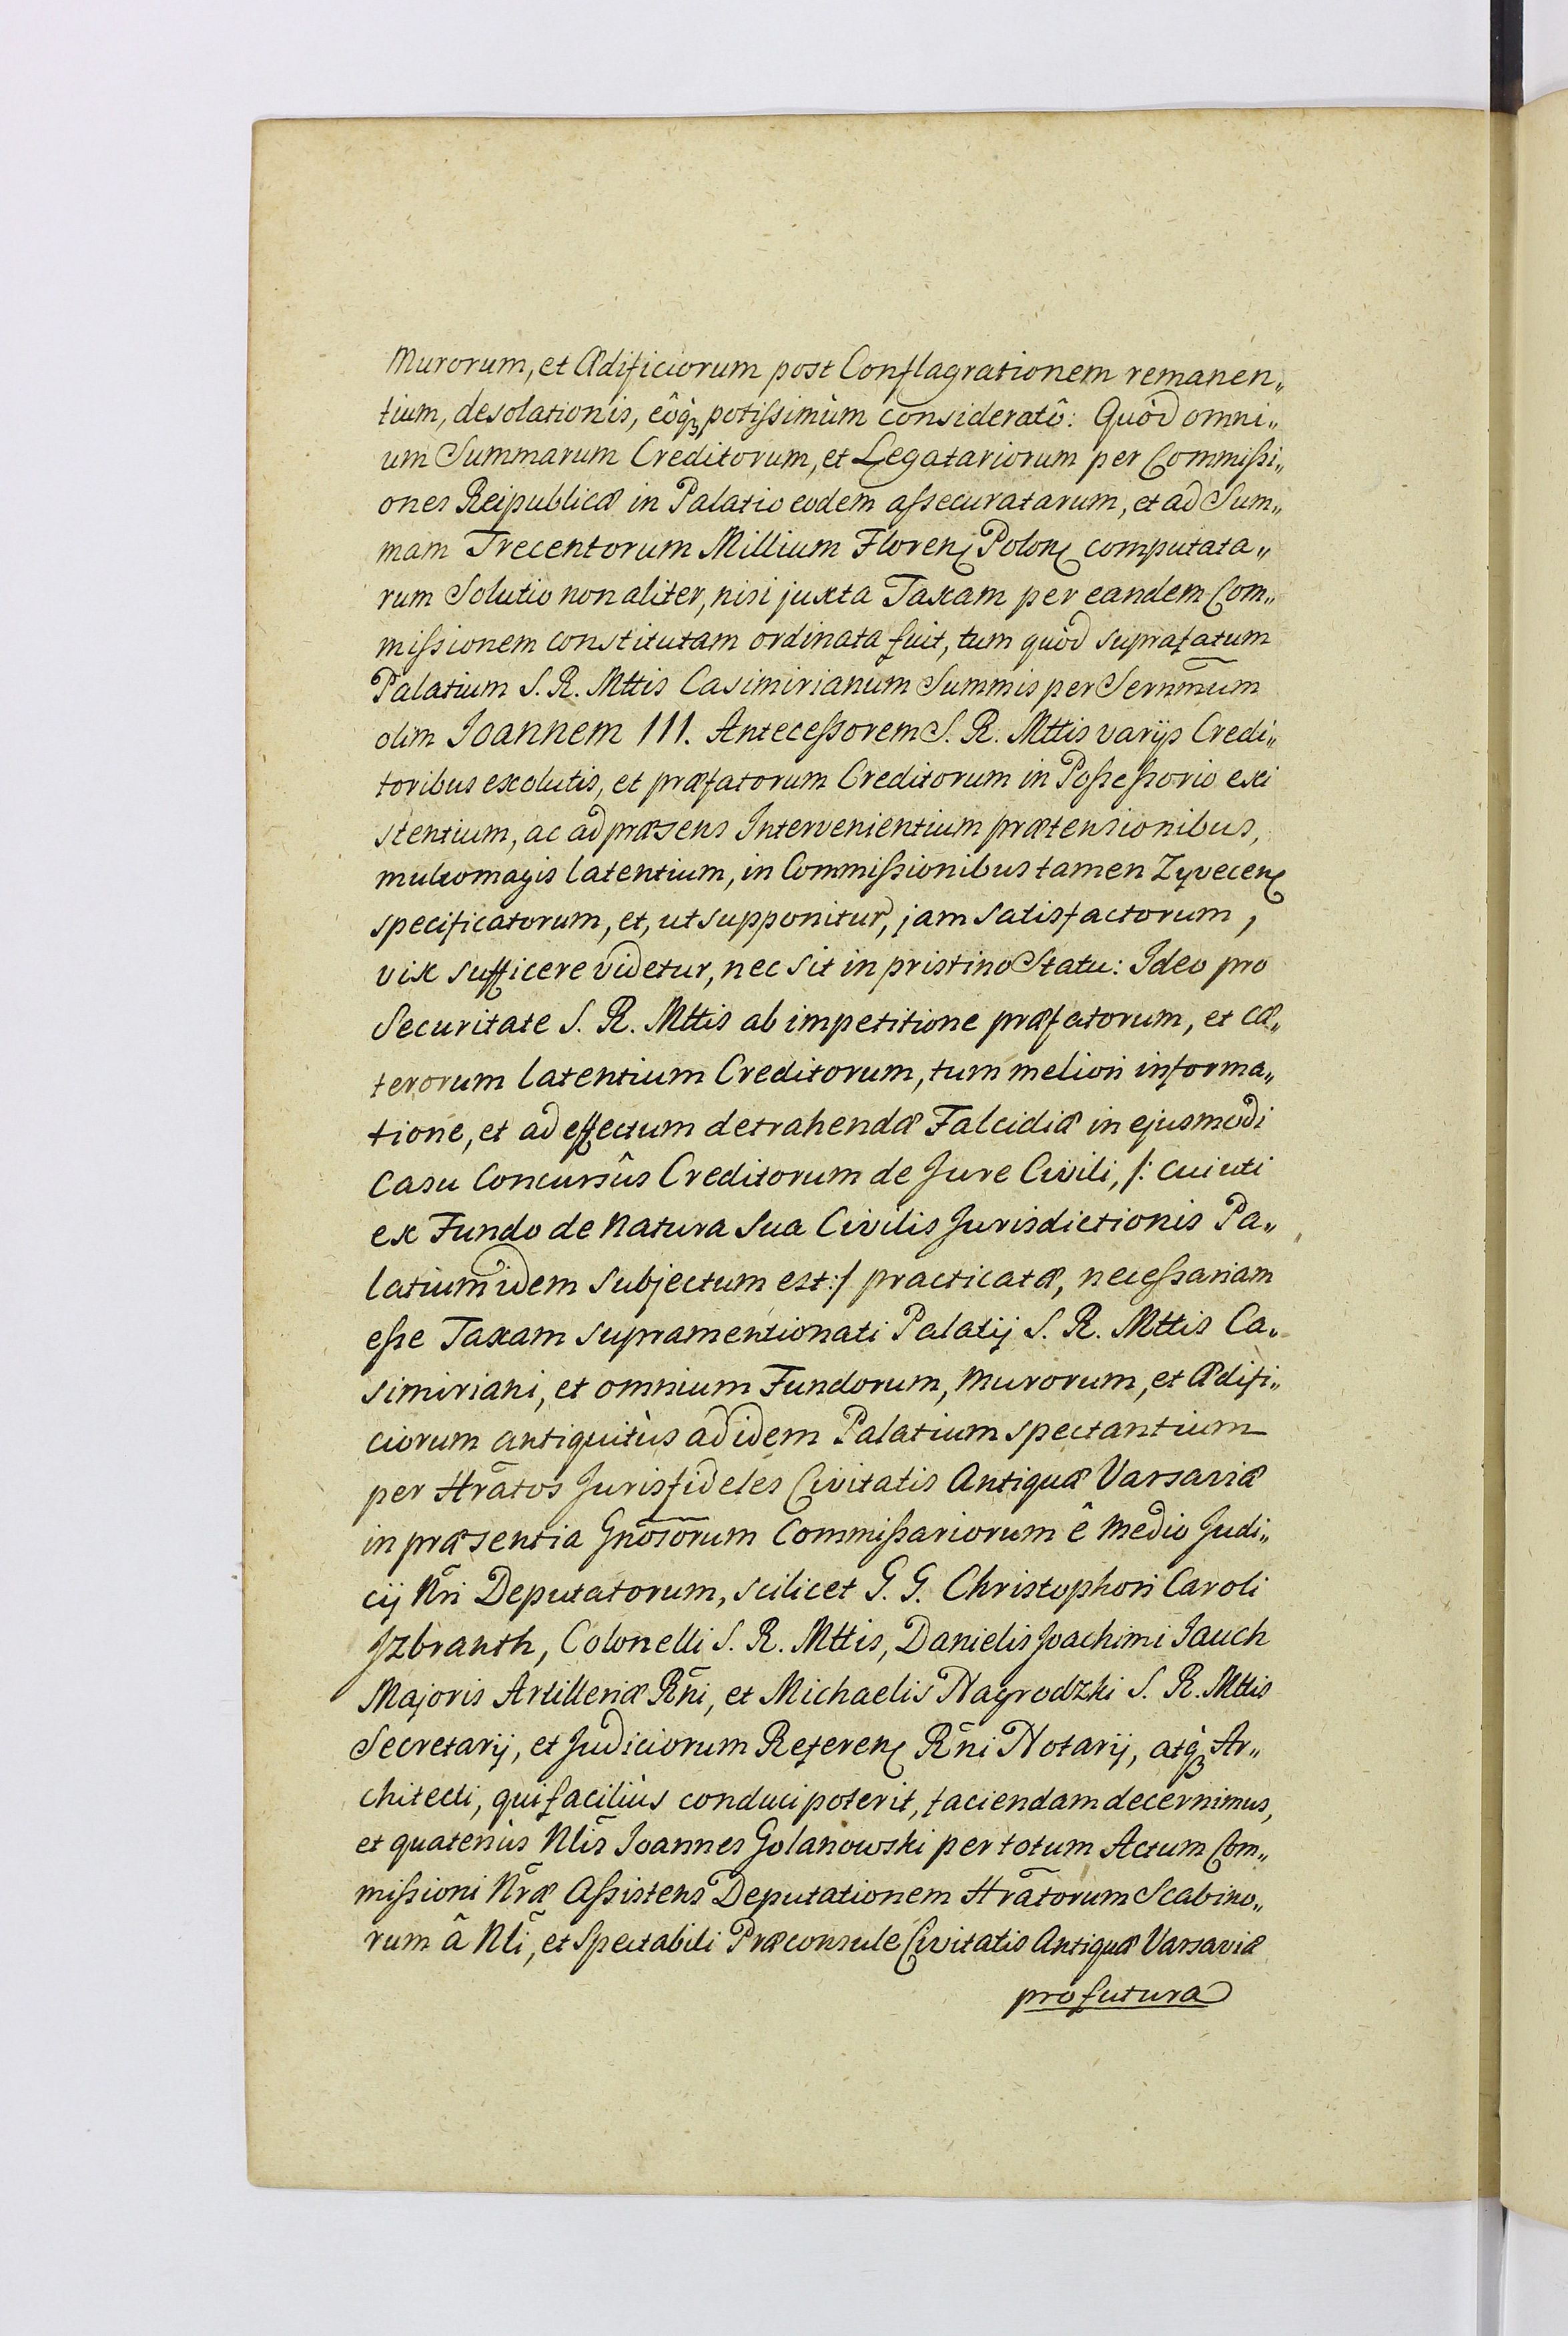 Murorum, et Ædificiorum post Conflagrationem remanen„
tium, desolationis, eôq̀ꝫ potißimùm consideratô: Quòd omni„
um Summarum Creditorum, et Legatariorum per Commißi„
ones Reipublicæ in Palatio eodem aßecuratarum, et ad Sum„
mam Trecentorum Millium Floren: Polon: computata„
rum Solutio non aliter, nisi juxta Taxam per eandem Com„
mißionem constitutam ordinata fuit, tum quòd suprafatum
Palatium S. R. Mttis Casimirianum Summis per Sernm̃um
olim Joannem III. Anteceßorem S. R. Mttis varijs Credi„
toribus exolutis, et præfatorum Creditorum in Poßeßorio exi
stentium, ac ad præsens Intervenientium prætensionibus,
multomagis latentium, in Commißionibus tamen Zyvecen:
specificatorum, et, ut supponitur, jam satisfactorum,
vix sufficere videtur, nec sit in pristino Statu: Ideo pro
Securitate S. R. Mttis ab impetitione præfatorum, et cæ„
terorum latentium Creditorum, tum meliori informa„
tione, et ad effectum detrahendæ Falcidiæ in ejusmodi
Casu Concursûs Creditorum de Jure Civili, /: cui uti
ex Fundo de Natura sua Civilis Jurisdictionis Pa„
latium idem subjectum est :/ practicatæ, neceßariam
eße Taxam supramentionati Palatij S. R. Mttis Ca„
simiriani, et omnium Fundorum, Murorum, et Ædifi„
ciorum antiquitùs ad idem Palatium spectantium
per Hr̃atos Jurisfideles Civitatis Antiquæ Varsaviæ
in præsentia Gnõsorum Commißariorum ê medio Judi„
cij Nr̃i Deputatorum, scilicet G. G. Christophori Caroli
Jzbranth, Colonelli S. R. Mttis, Danielis Joachimi Jauch
Majoris Artilleriæ Rñi, et Michaelis Nagrodzki S. R. Mttis
Secretarij, et Judiciorum Referen: Rñi Notarij, atq̀ꝫ Ar„
chitecti, qui faciliùs conduci poterit, faciendam decernimus,
et quatenùs Nlĩs Joannes Golanowski per totum Actum Com„
mißioni Nr̃æ Aßistens Deputationem Hr̃atorum Scabino„
rum â Nlĩ, et Spectabili Præconsule Civitatis Antiquæ Varsaviæ
pro futura